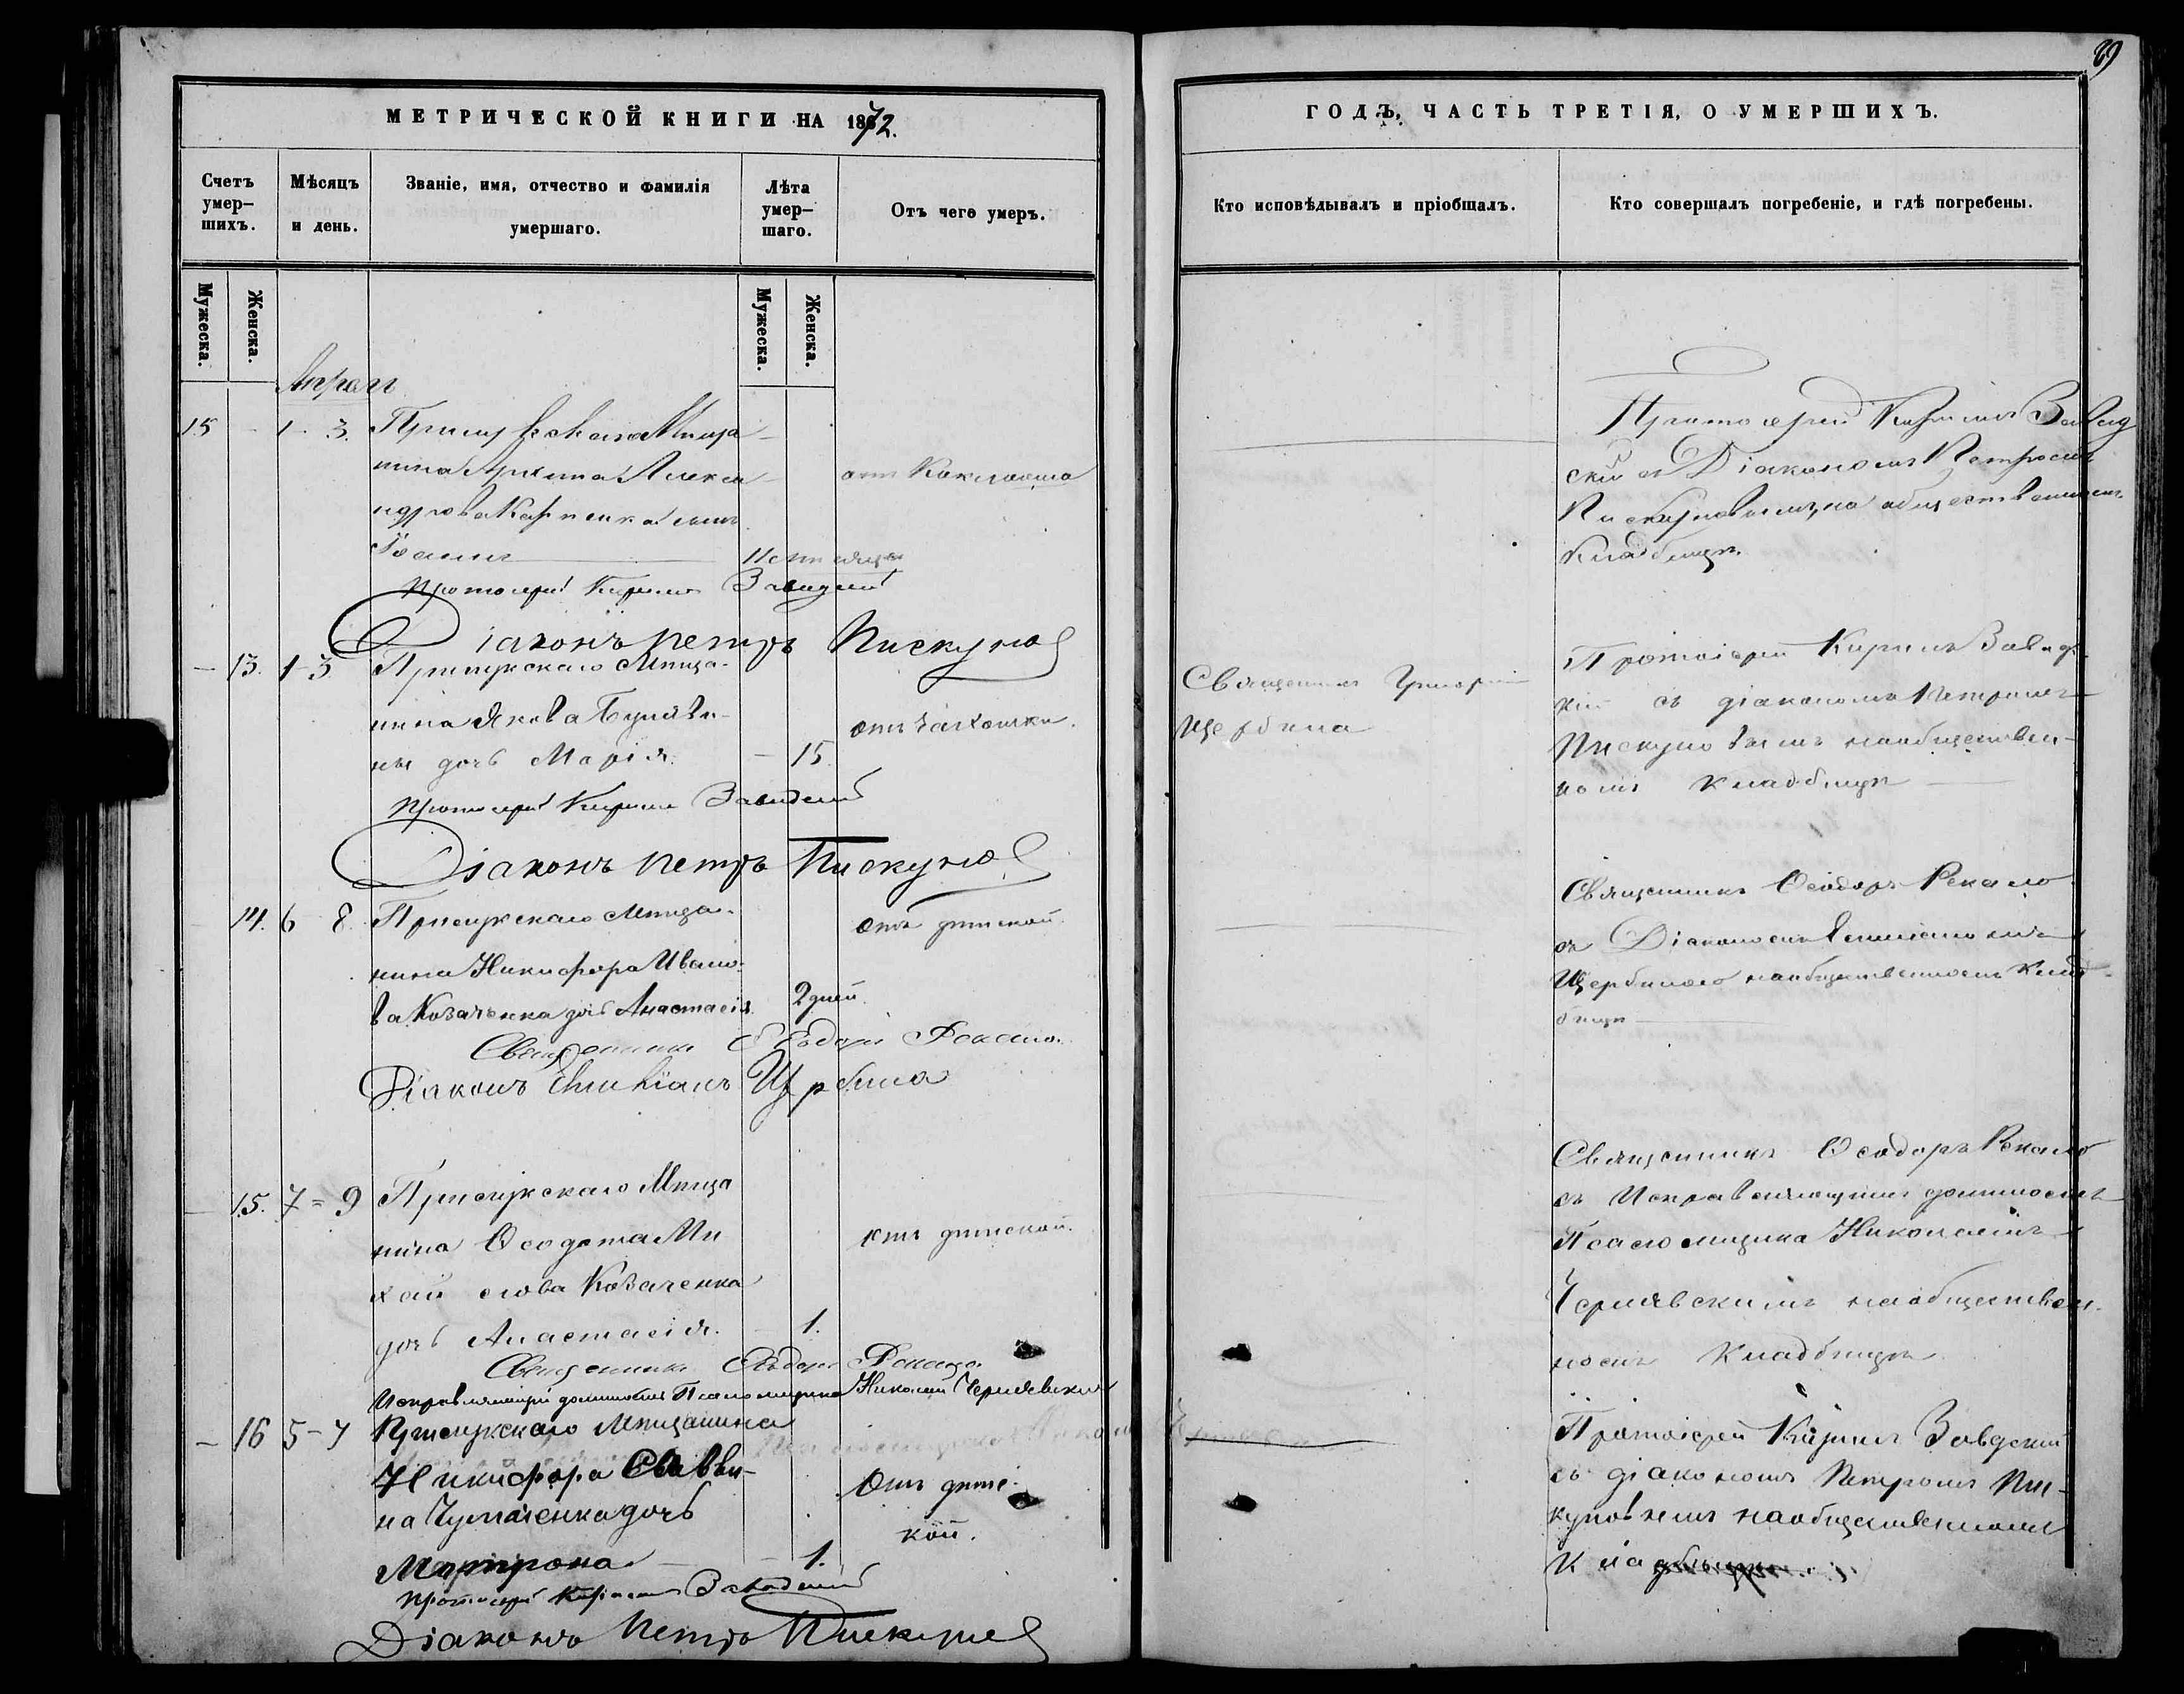 89
МЕТРИЧЕСКОЙ КНИГИ НА 1872.
ГОДЪ, ЧАСТЬ ТРЕТІЯ, О УМЕРШИХЪ.
Счетъ умер-шихъ.
Мѣсяцъ и день.
Званіе, имя, отчество и фамилія умершаго.
Лѣта умер-шаго.
Отъ чего умеръ.
Кто исповѣдывалъ и пріобщалъ.
Кто совершалъ погребеніе, и гдѣ погребены.
Мужеска.
Женска.
Мужеска.
Женска.
15 - 1 - 3. Прилуцкаго Мѣща-
нина Архипа Алекса-
ндрова Карпенка сынъ
отъ Коклюша
Протоіерей Кириллъ
скій съ Діакономъ Петромъ
Пискуновымъ, на общественномъ
Кладбищѣ.
Протоіерей Кириллъ
Діаконъ Петръ Пискуновъ
- 13. 1-3 Прилукскаго Мѣща-
нина Якова
дочь Марія. - 15.
Священникъ Григорій
Щербина
Протоіерей Кириллъ
кій съ діакономъ Петромъ
Пискуновымъ на обществен-
номъ кладбищѣ
Протоіерей Кириллъ
Діаконъ Петръ Пискуновъ
14. 6 8. Прилукскаго Мѣща-
нина Никифора Ивано-
ва Козаченка дочь Анастасія. 2 дней.
отъ дѣтской.
Священникъ Ѳеодоръ Рекало
съ Діакономъ Емиліаномъ
Щербиною на общественномъ клад-
бищѣ
Священникъ Ѳеодоръ Рекало.
Діаконъ Емиліанъ Щербина
15. 7 = 9 Прилукскаго Мѣща
нина Ѳеодота Ми
хайлова Козаченка
дочь Анастасія. - 1.
отъ дѣтской.
Священникъ Ѳеодоръ Рекало
съ Исправляющимъ должность
Псаломщика Николаемъ
Чернявскимъ на обществен-
номъ Кладбищѣ
Священникъ Ѳеодоръ Рекало
Исправляющій должность Псаломщика Николай Чернявскій
- 16 5-7 Прилукскаго Мѣщанина
Никифора Савви-
на дочь
Матрона. - 1.
Отъ дѣтс-
кой.
Протоіерей Кириллъ
съ діакономъ Петромъ Пис-
куновымъ на общественномъ
Кладбищѣ
Протоіерей Кириллъ
Діаконъ Петръ Пискуновъ